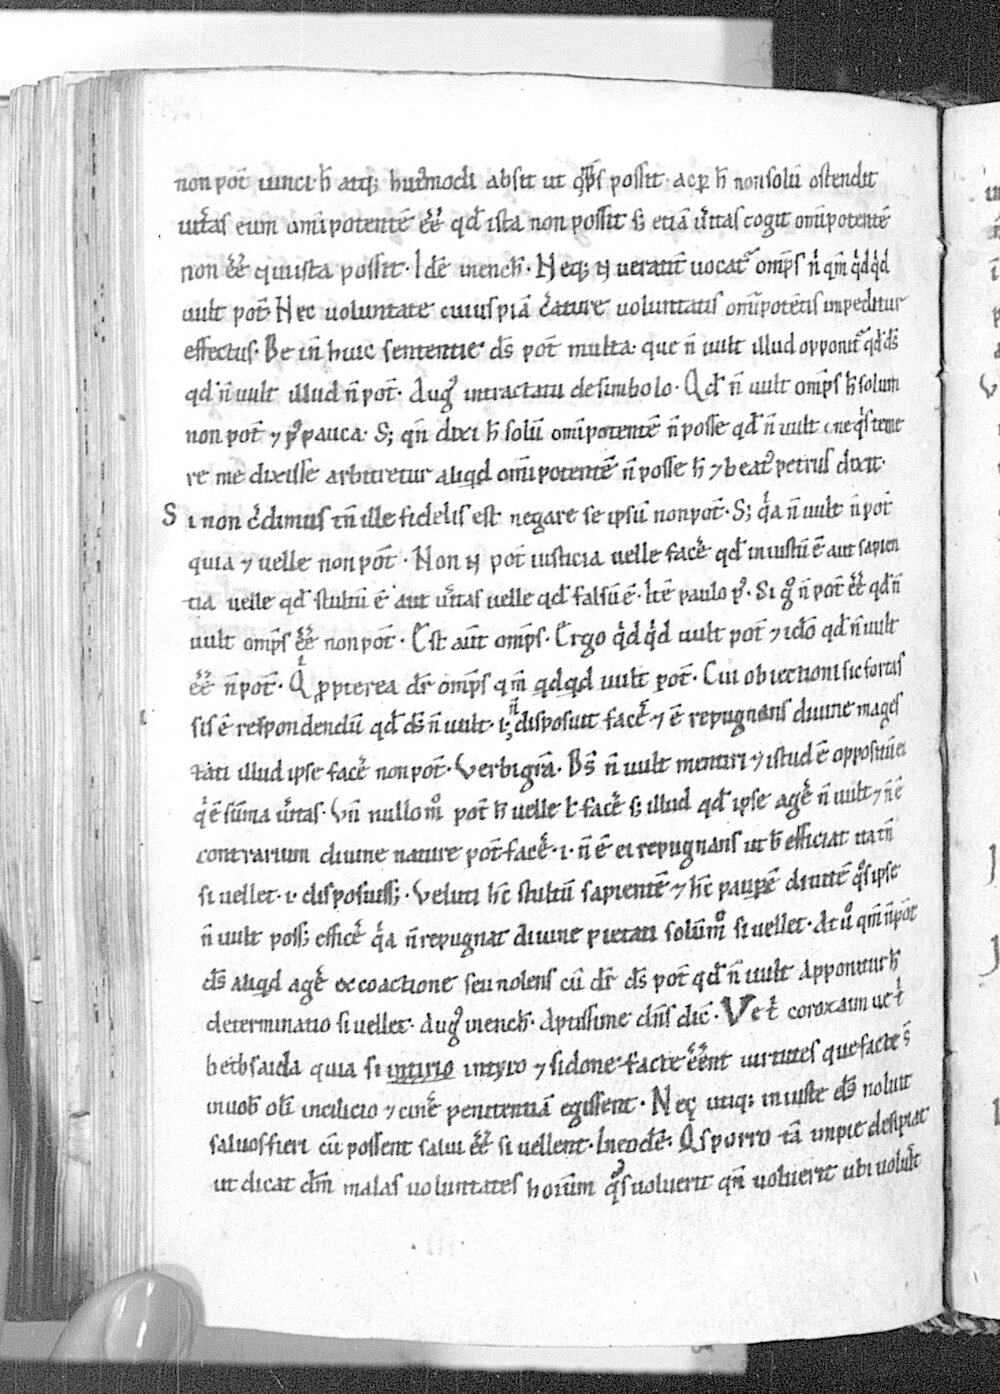 non pot̄ uinci h̄ atq; hui᷒modi absit ut q̄s possit. ac ꝑ h̄ non solū ostendit
uīt̄as eum omīpotentē ēē qd̄ ista non possit s; etiā ūitas cogit omīpotentē
non ēē qui ista possit. Idē in ench̄. Neq; n̄ ueratīt uocat᷒ omp̄s n̄ qm̄ qdqd
uult pot̄ Nec uoluntate cuiuspiā c̄ature uoluntatis omīpotētis impeditur
effectus. Be in̄ huic sententie d̄s pot̄ multa. que n̄ uult illud opponit᷒ qd d̄s
qd̄ n̄ uult illud n̄ pot̄. Aug᷒ in tractatu de simbolo. Qd̄ n̄ uult omp̄s h̄ solum
non pot̄ ⁊ p᷒ pauca. S; qn̄ dixi h̄ solū omīpotentē n̄ posse qd̄ n̄ uult . ne q̇s teme
re me dixisse arbitretur aliqd omīpotentē n̄ posse h̄ ⁊ beat᷒ petrus dixit.
Si non c̄dimus in̄ ille fidelis est negare se ipsū non pot̄. S; q̇a n̄ uult n̄ pot̄
quia ⁊ uelle non pot̄. Non n̄ pot̄ iusticia uelle facē qd̄ iniustū ē aut sapien
tia uelle qd̄ stultū ē aut ūitas uelle qd̄ falsū ē. Itē paulo p᷒. Si g̊ n̄ pot̄ ēē qd̄ n̄
uult omp̄s ēē non pot̄. Est aūt omp̄s. Ergo qdqd uult pot̄ ⁊ idō qd̄ n̄ uult
ēē n̄ pot̄. Q ꝓpterea dr̄ omp̄s qm̄ qdqd uult pot̄. Cui obiectioni sic fortas
sis ē respondendū qd̄ d̄s n̄ uult .i. n̄ disposuit facē ⁊ ē repugnans diuine mages
tati illud ipse facē non pot̄. Verbi gr̄a. D̄s n̄ uult mentiri ⁊ istud ē oppositū ei
q̇ ē sūma ūitas. Vn̄ nullo m̊ pot̄ h̄ uelle ł facē s; illud qd̄ ipse agē n̄ uult ⁊ n̄ ē
contrarium diuine nature pot̄ facē .i. n̄ ē ei repugnans ut h̄ efficiat ita tn̄
si uellet .i. disposuiss;. Veluti hc̄ stultū sapientē ⁊ hc̄ paupē diuitē q̊s ipse
n̄ uult poss; efficē q̇a n̄ repugnat diuine pietati solūm̊ si uellet. At ů qm̄ n̄ pot̄
d̄s aliqd agē ex coactione seu nolens cū dr̄ d̄s pot̄ qd̄ n̄ uult apponitur h̄
determinatio si uellet. Aug᷒ in ench̄. Aptissime dn̄s dic̄. Ve t̄ corozaim ue t̄
bethsaida quia si intirio in tyro ⁊ sidone facte ēent uirtutes que facte s̄
in uob̄ oli incilicio ⁊ cinē penitentiā egissent. Neq; utiq; iniuste d̄s noluit
saluos fieri cū possent salui ēē si uellent. In eodē. Q̇s porro tā impie desipiat
ut dicat dm̄ malas uoluntates hoīum q̊s uoluerit qn̄ uoluerit ubi uolūit